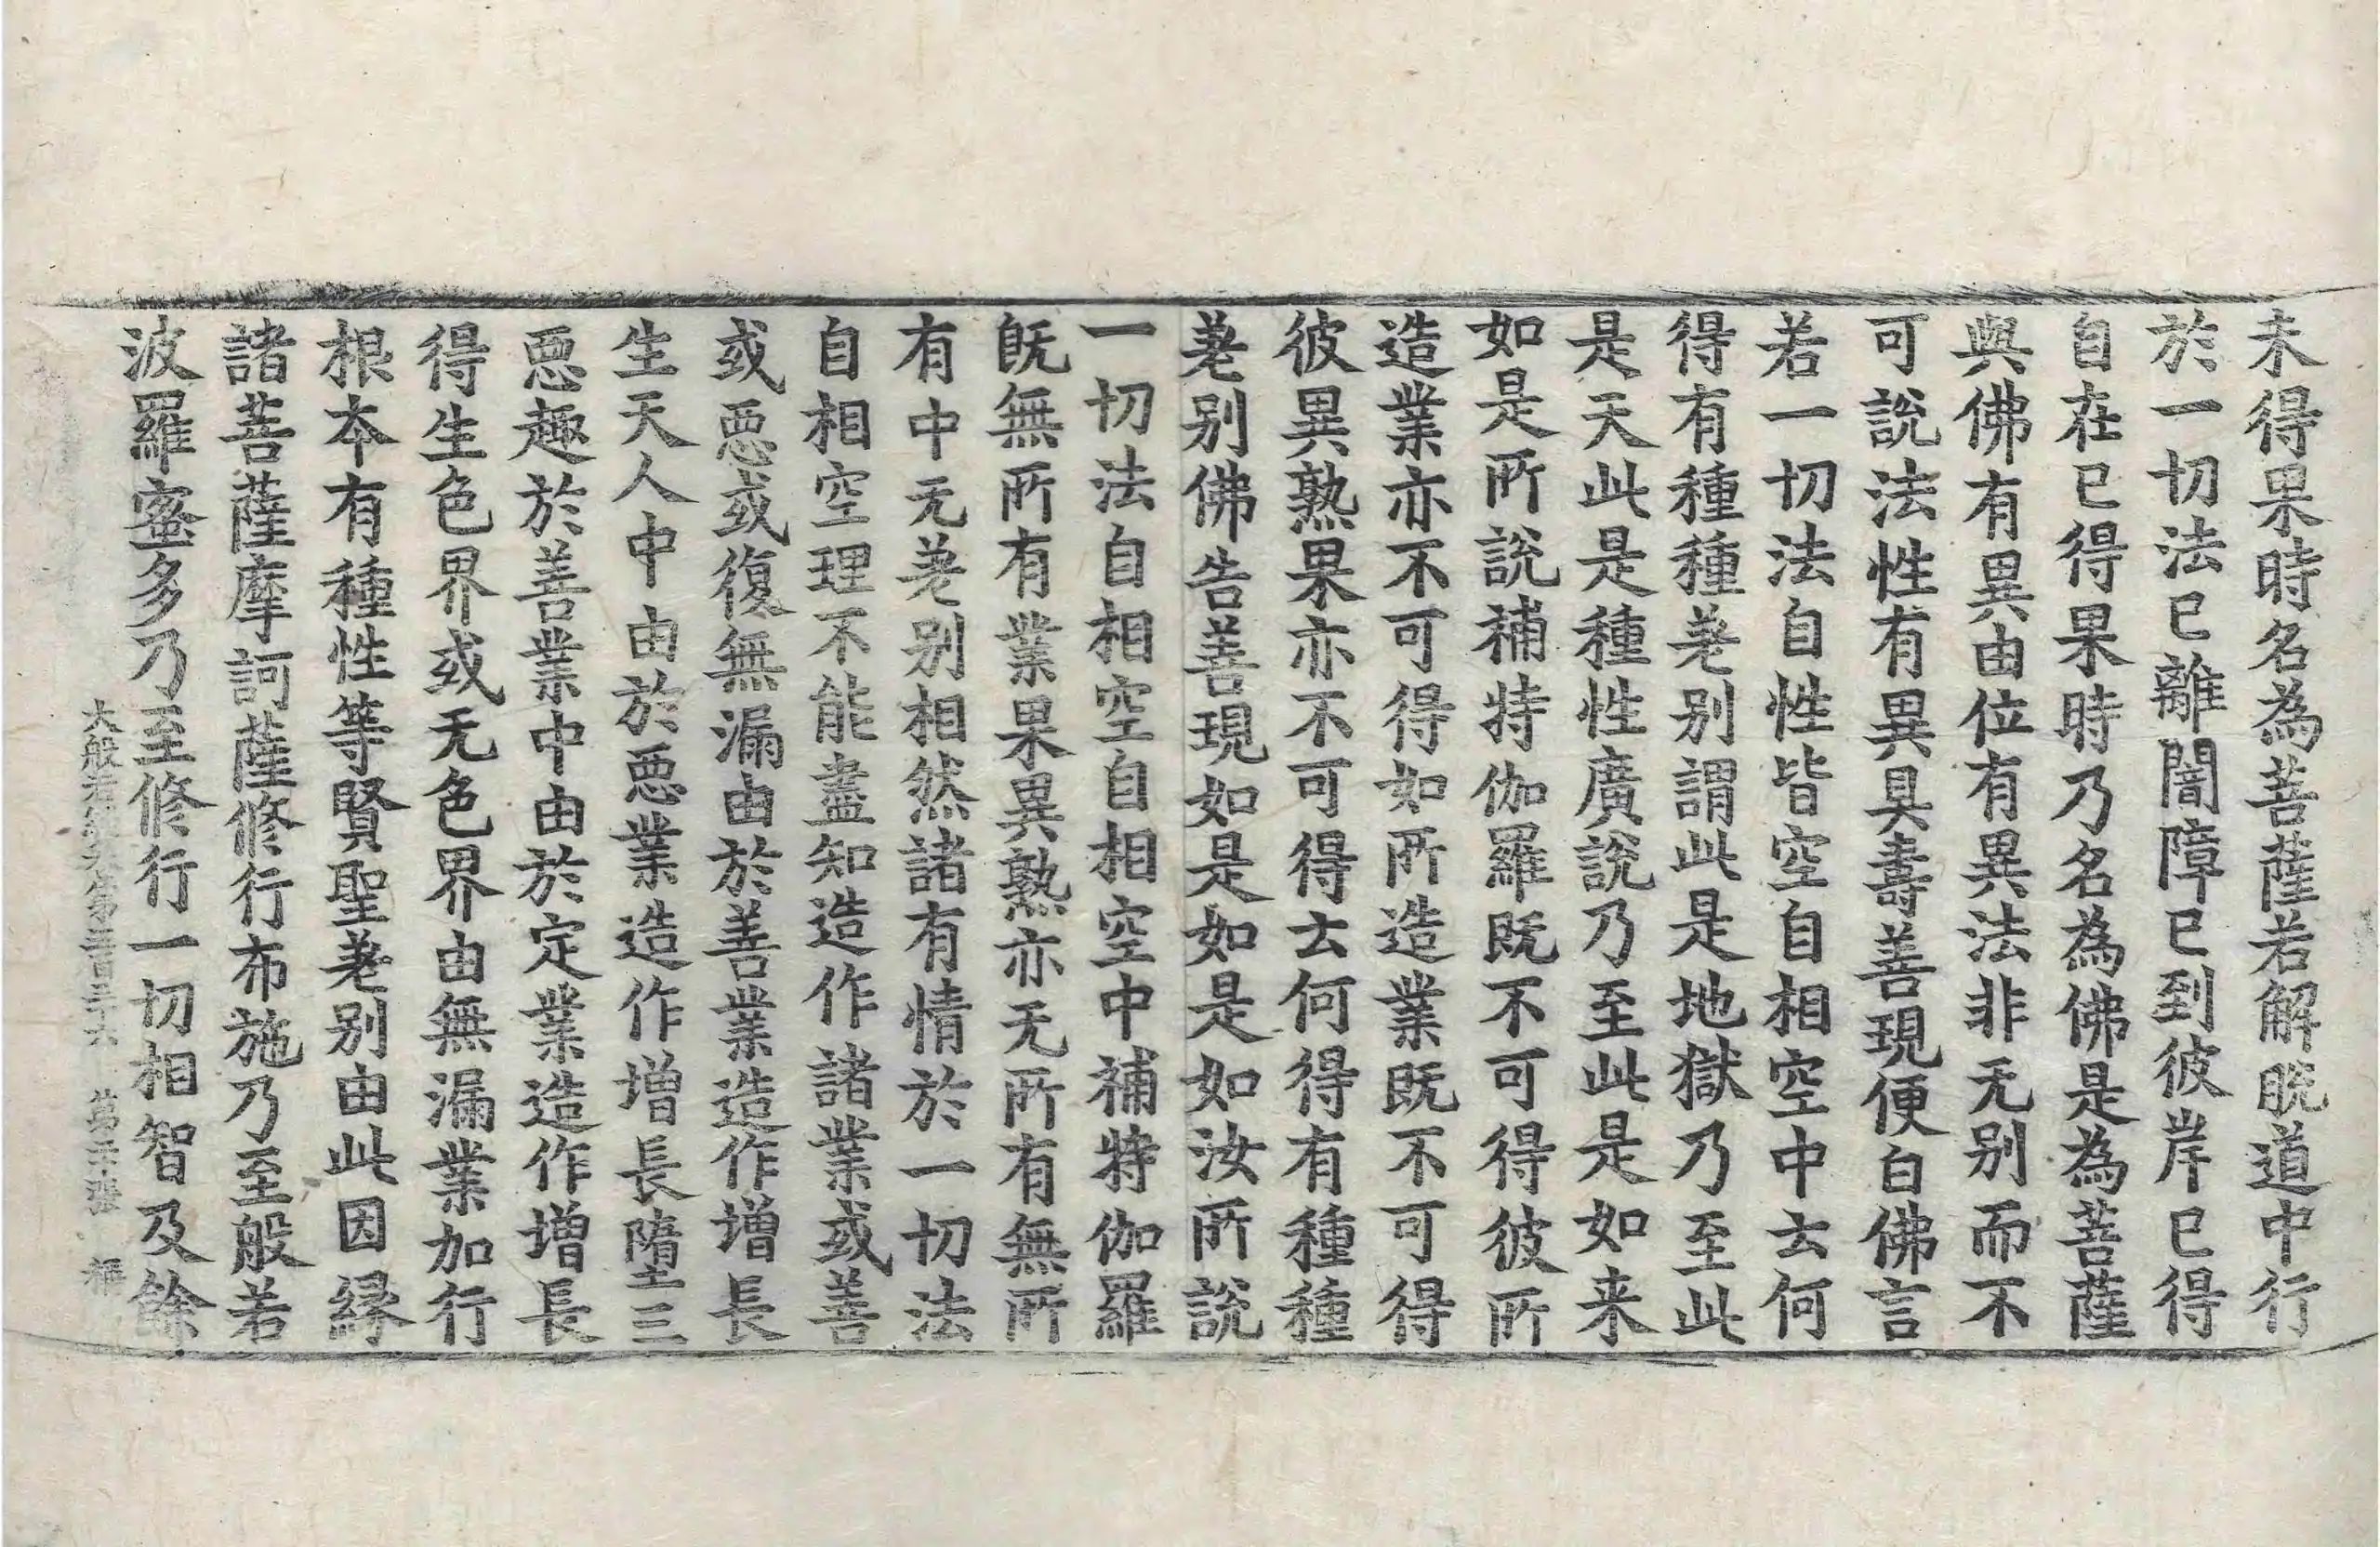 未得果時名為菩薩若解脫道中行
於一切法已離闇障已到彼岸已得
自在已得果時乃名為佛是為菩薩
與佛有異由位有異法非无別而不
可說法性有異具壽善現便白佛言
若一切法自性皆空自相空中云何
得有種種差別謂此是地獄乃至此
是天此是種性廣說乃至此是如来
如是所說補特伽羅既不可得彼所
造業亦不可得如所造業既不可得
彼異熟果亦不可得云何得有種種
差別佛告善現如是如是如汝所說
一切法自相空自相空中補特伽羅
既無所有業果異熟亦无所有無所
有中无差別相然諸有情於一切法
自相空理不能盡知造作諸業或善
或惡或復無漏由於善業造作增長
生天人中由於惡業造作增長墮三
惡趣於善業中由於定業造作增長
得生色界或无色界由無漏業加行
根本有種性等賢聖差別由此因緣
諸菩薩摩訶薩修行布施乃至般若
波羅蜜多乃至修行一切相智及餘
大般若經 第三百 十六 第 張